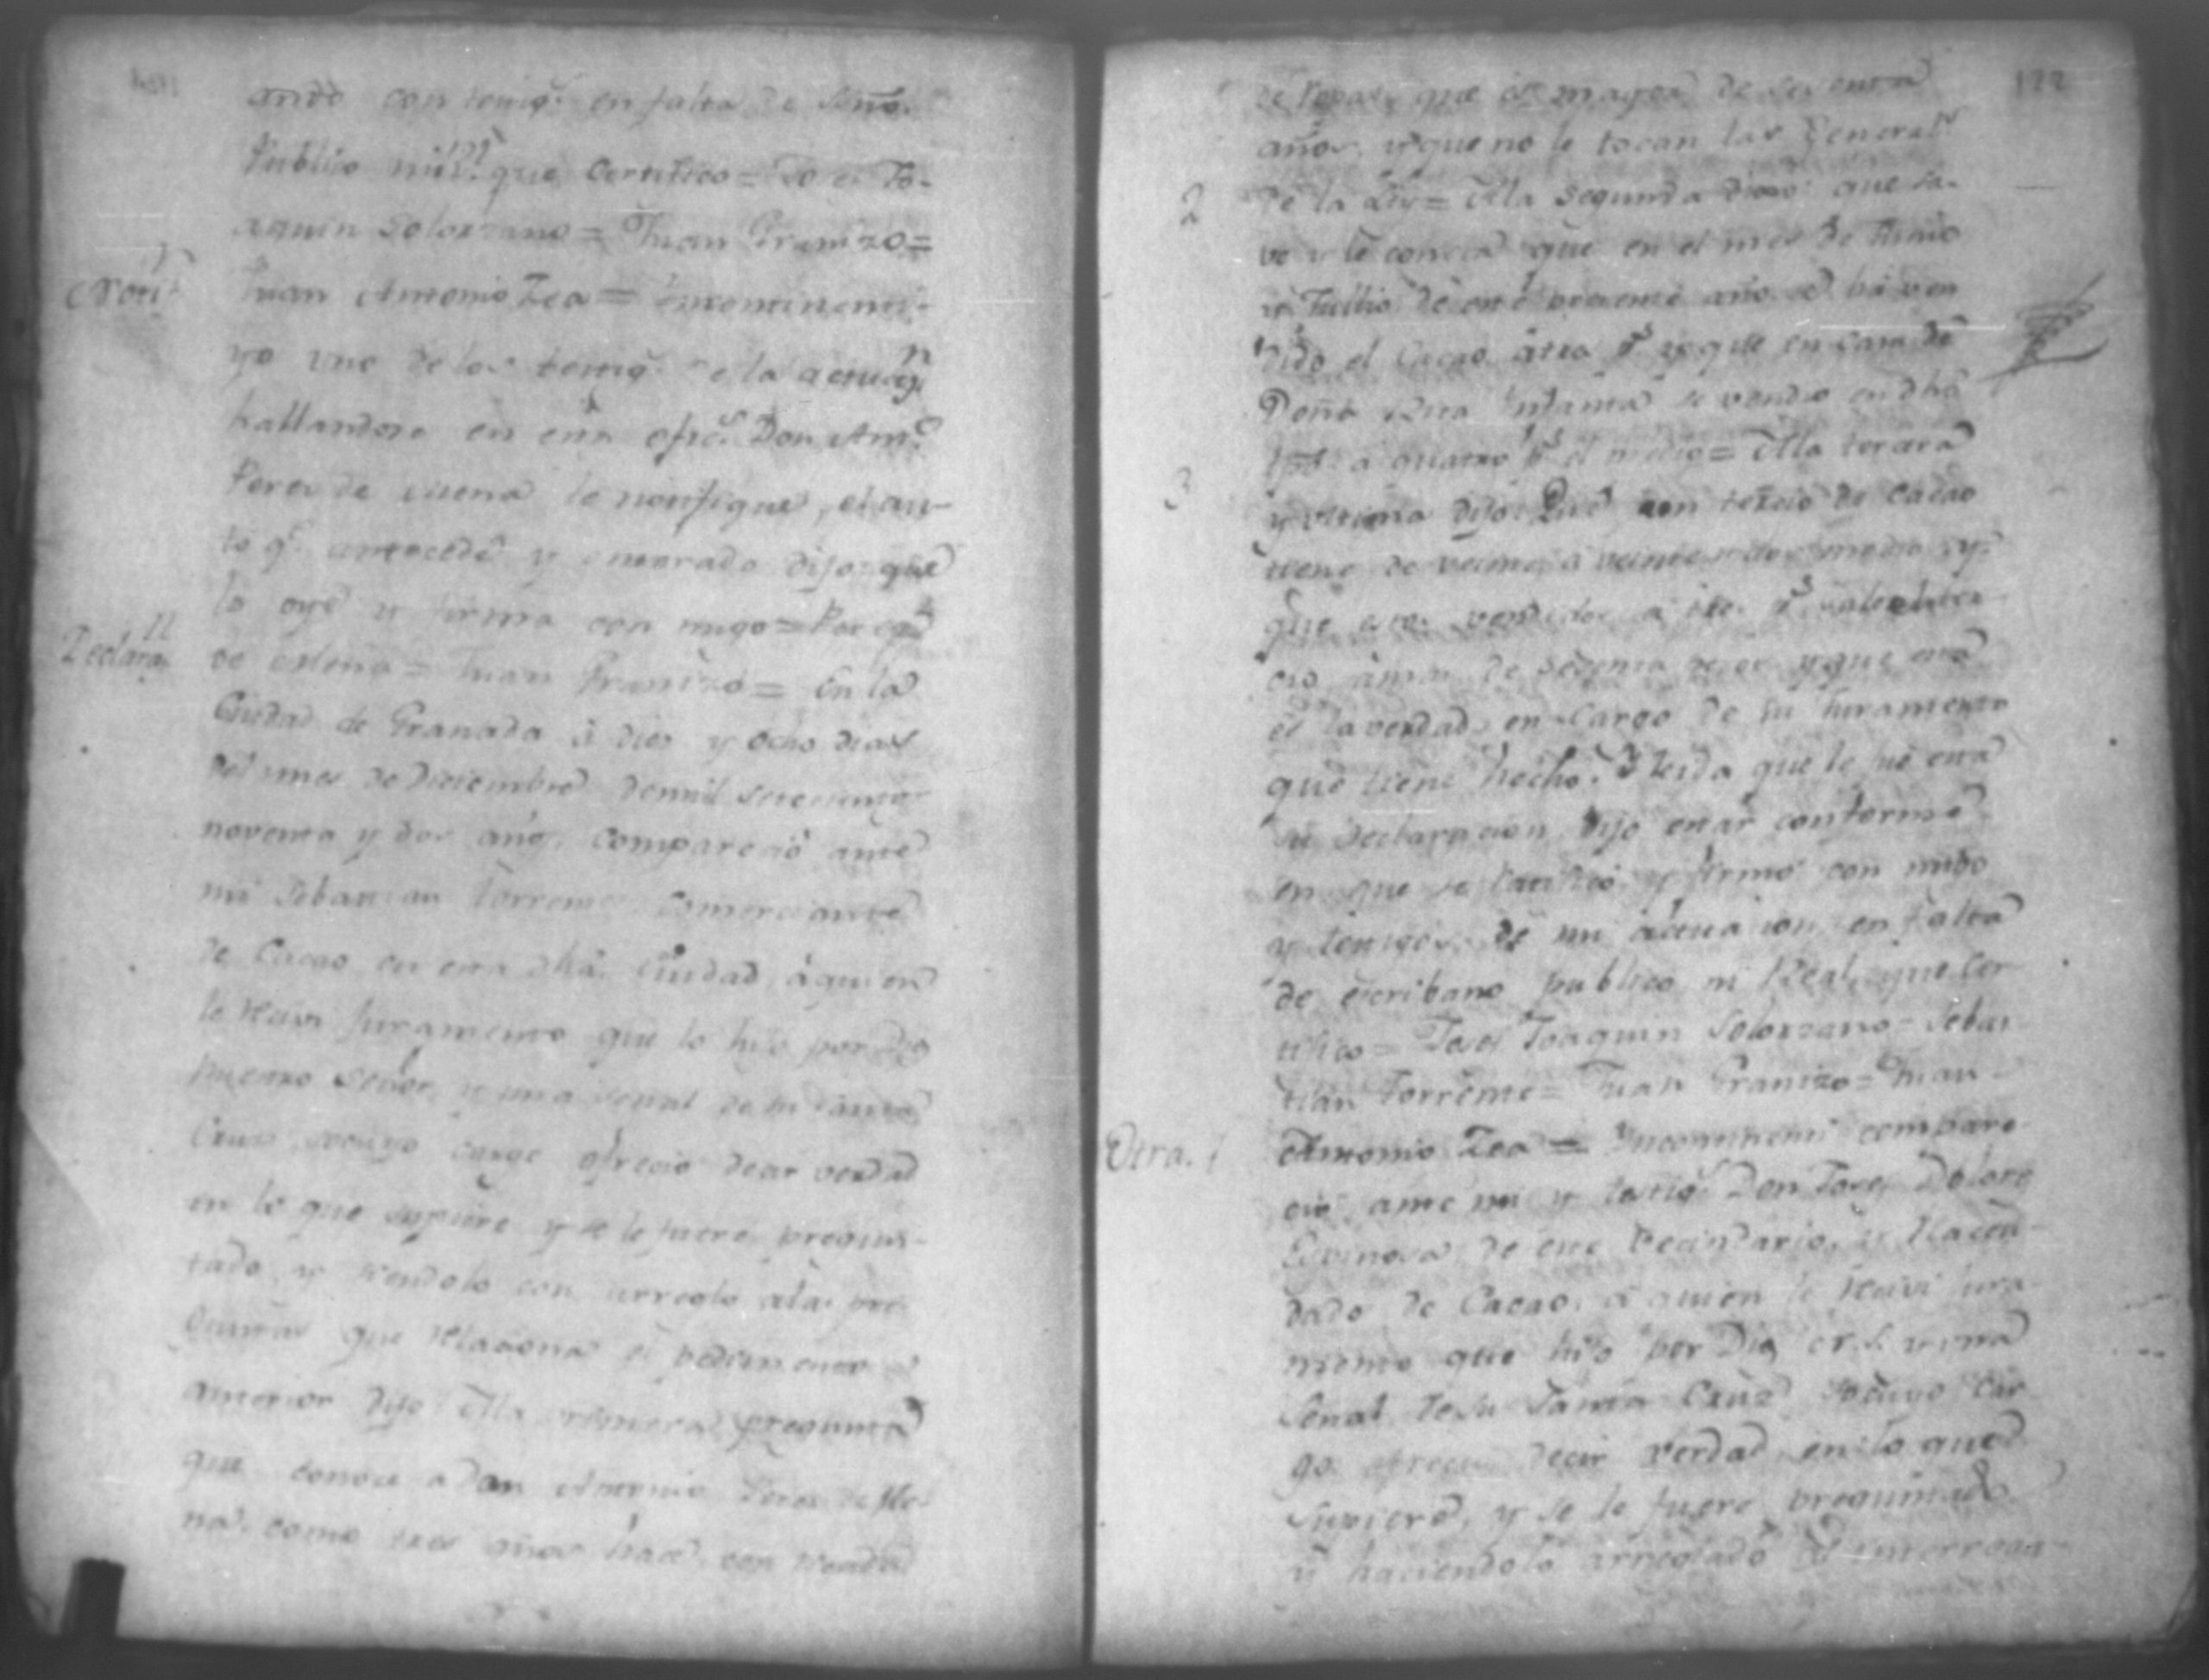 ando con testig.s en falta de Esño.
Publico ni Rl. que Certifico = Jose Jo-
aquin Solorzano = Juan Granizo =
Noti.n Juan Antonio Zea = Incontinenti
yo uno de los testig.s de la actuaz.n
hallandose en esta ofic.a Don Ant.o
Peres de llena le notifique, el au-
to q.e antecede y enterado dijo: que
lo oye y firma con migo = Peres
Declaraz.n de llena = Juan Granizo = En la
Ciudad de Granada â dies y ocho dias
del mes de Diciembre de mil setecientos
noventa y dos años, Comparecio ante
mi Sebastian Torrente Comerciante
de Cacao en esta dhâ. Ciudad, â quien
le recivi Juramento que lo hiso por Dios
nuestro Señor, y una señal de su santa
Cruz, vajo cuyo cargo ofrecio decir verdad
en lo que supiere y se le fuere pregun-
tado, y siendolo con arreglo a las pre-
guntas que relaciona el pedimento
anterior dijo: Ala primera pregunta
que conoce a Don Antonio Peres de lle-
na, como tres años hace, con
122
que es mayor de sesenta
años, y que no le tocan las General.s
2 de la Ley = Ala segunda dixo: que sa-
ve y le consta que en el mes de Junio
y Jullio de este presente año se ha ven
dido el Cacao â tres p.s y que en casa de
Doña Rita Infanta se vendio en dhô
tpô. a quatro p.s el medio = Ala tercera
3 y ultima dijo: Que un tercio de Cacao
tiene de veinte a veinte y dos medios, y
que estos vendidos a tres p.s
cio, â mas de sesenta pesos y que esta
es la verdad, en Cargo de su Juramento
que tiene hecho. Y leida que le fue esta
su declaracion, dijo estar conforme
en que se ratificó y firmó con migo
y testigos de mi actuacion, en falta
de escribano publico, ni Real, que Cer-
tifico = Josef Joaquin Solorzano = Sebas-
tian Torrente = Juan Granizo = Juan
Otra. Antonio Zea = Incontinenti compare-
cio ante mi y testig.s Don Josef Dolores
Espinosa de este Vecindario, y Hacen-
dado de Cacao, â quien le recivi Jura-
mento que hiso por Dios nr.o S. y una
Señal de su Santa Cruz, vajo cuyo Car-
go ofrecio decir verdad en lo que
Supiere, y se le fuere preguntado
y haciendolo arreglado al interroga-